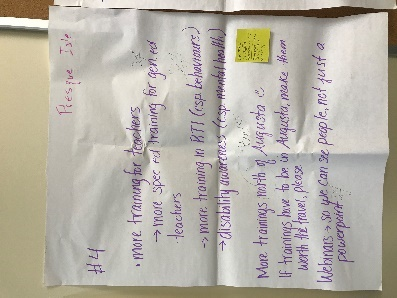 Presque Isle
#4
• more training for teachers
→ more spec ed training for gen ed
teachers
→ more training in RTI (esp behaviours)
→ disability awareness (esp mental health)
More trainings north of Augusta
If trainings have to be in Augusta, make them
worth the travel, please
Webinars → so we can see people, not just a
powerpoint